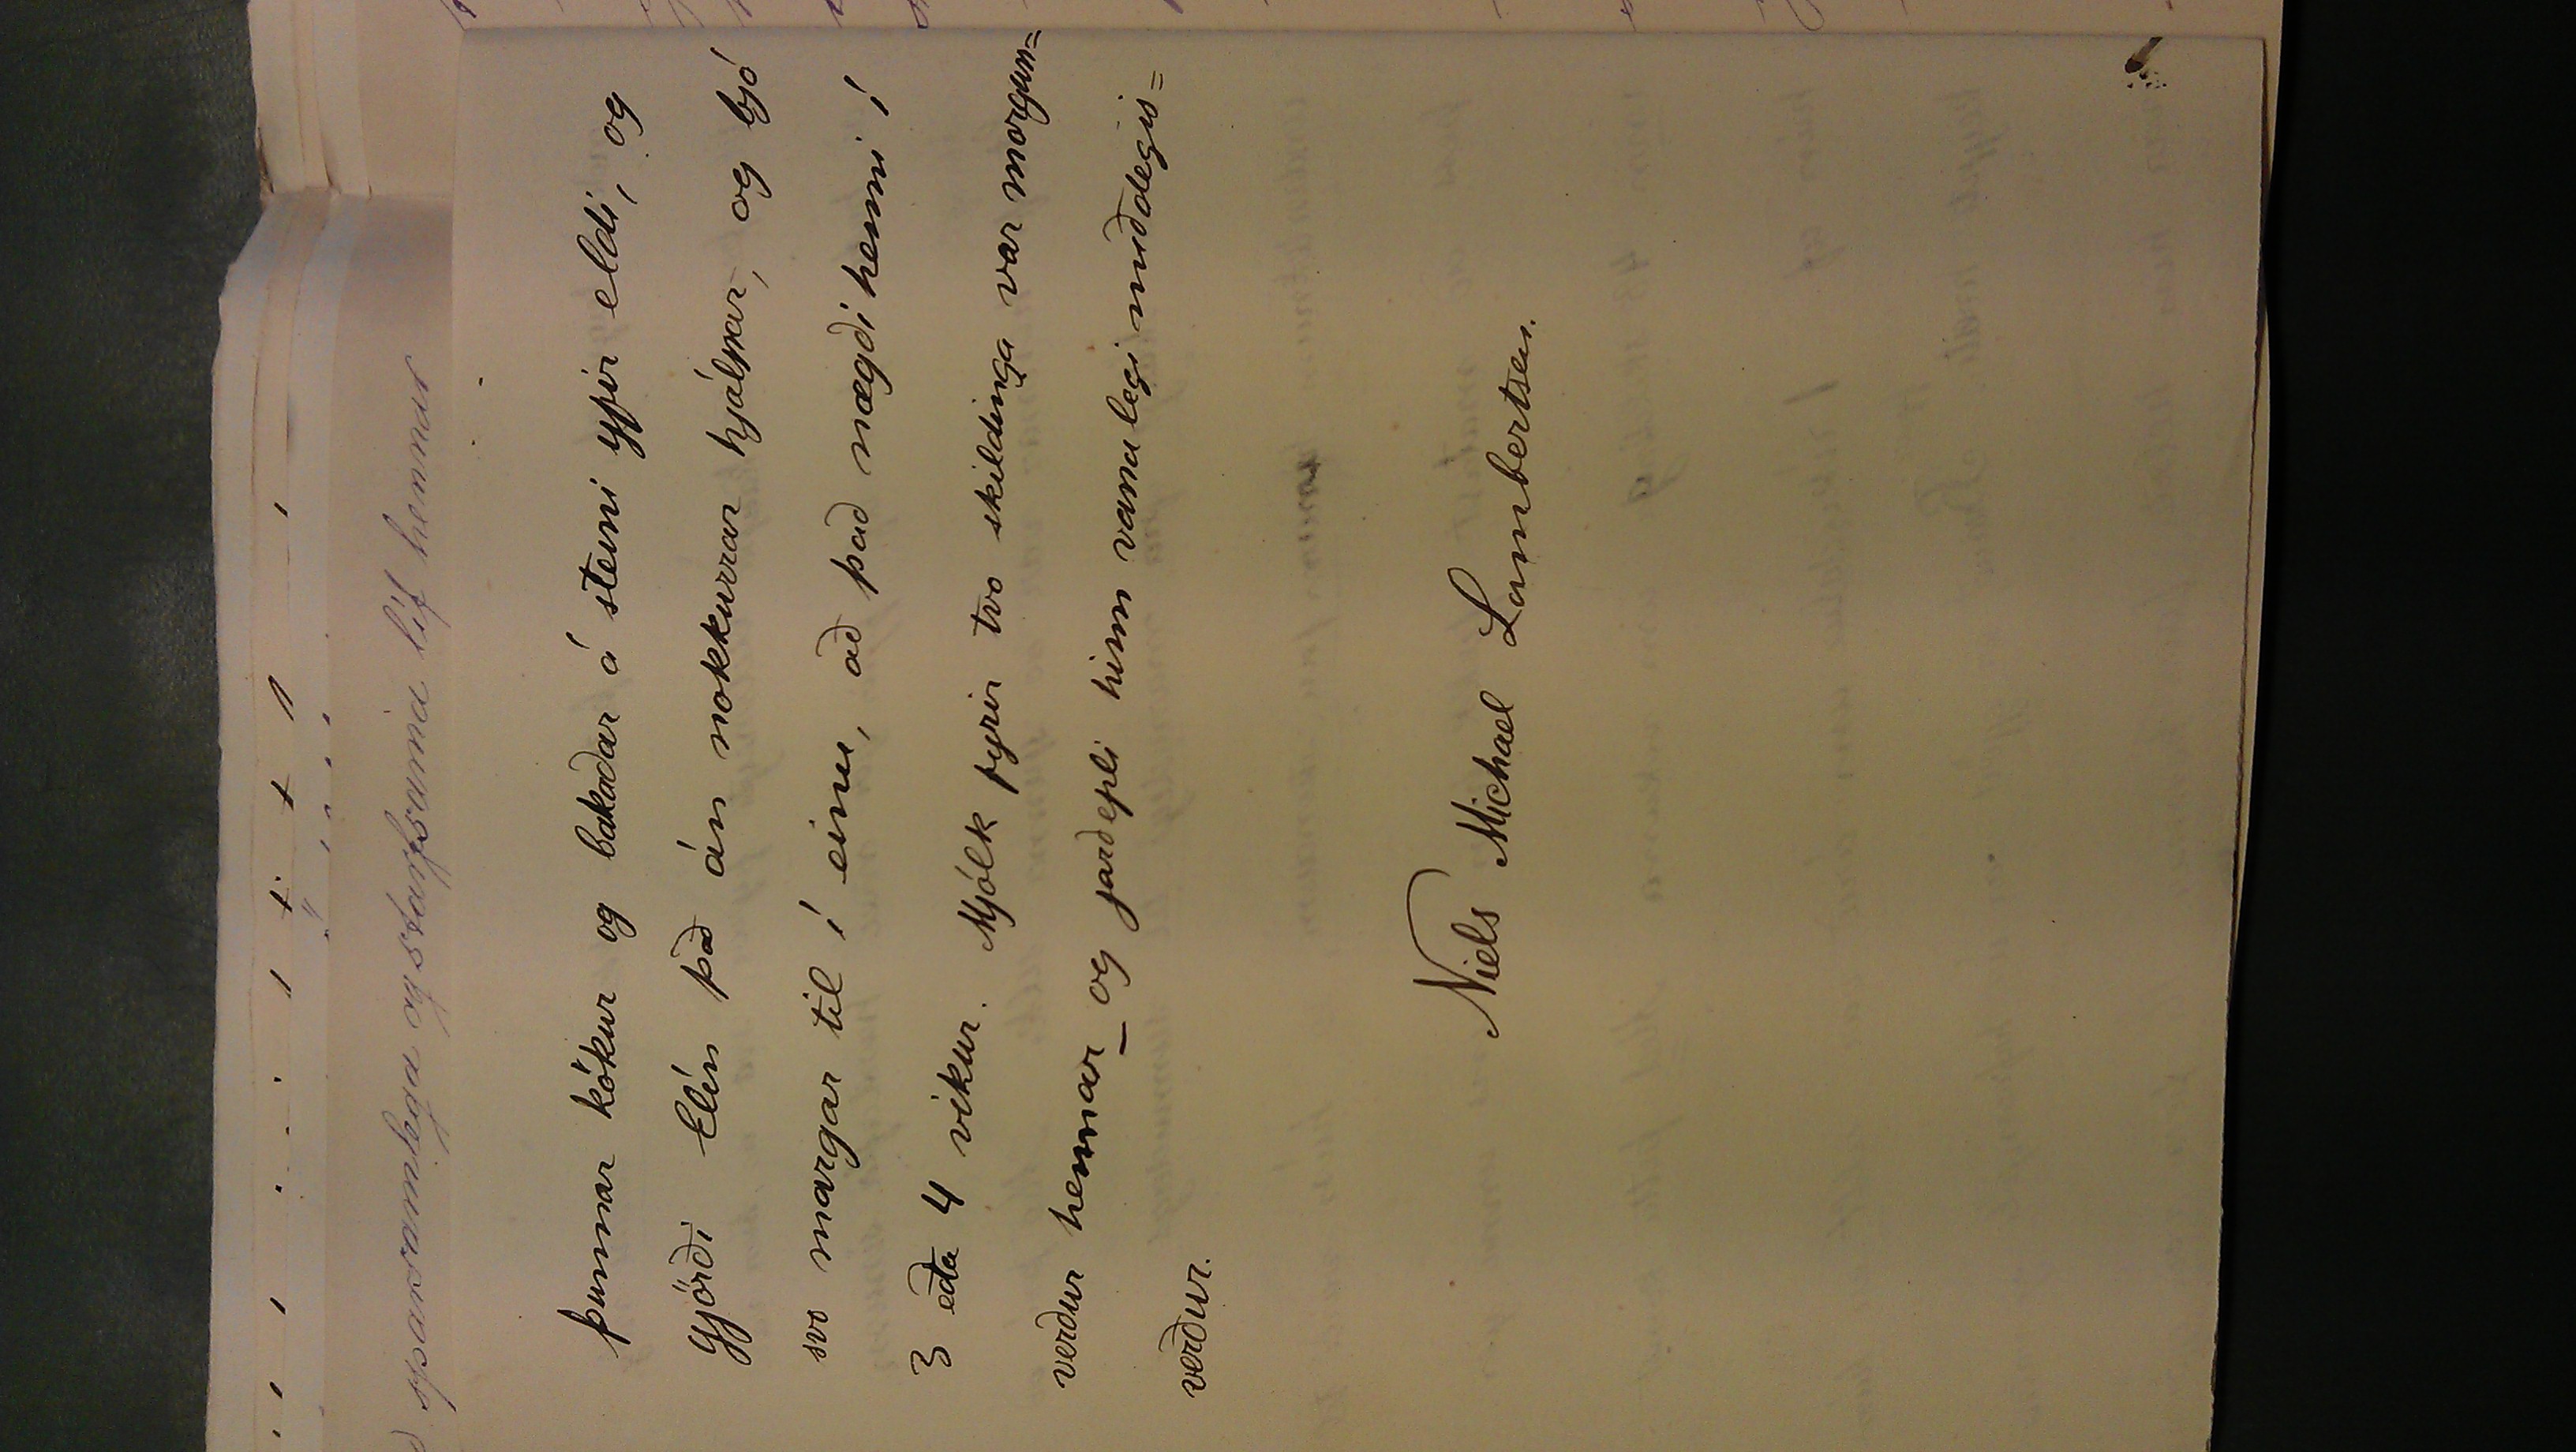 sparsamlega og starfsama líf hennar
þunnar kökur og bakaðar á steini yfir eldi, og
gjörði Elín það án nokkurrar hjálpar, og bjó
svo margar til í einu, að það nægði henni í
3 eða 4 vikur. Mjólk fyrir tvo skildinga var morgun=
verður hennar_ og jarðepli hinn vanalegi miðdegis=
verður.
Niels Michael Lambertsen.